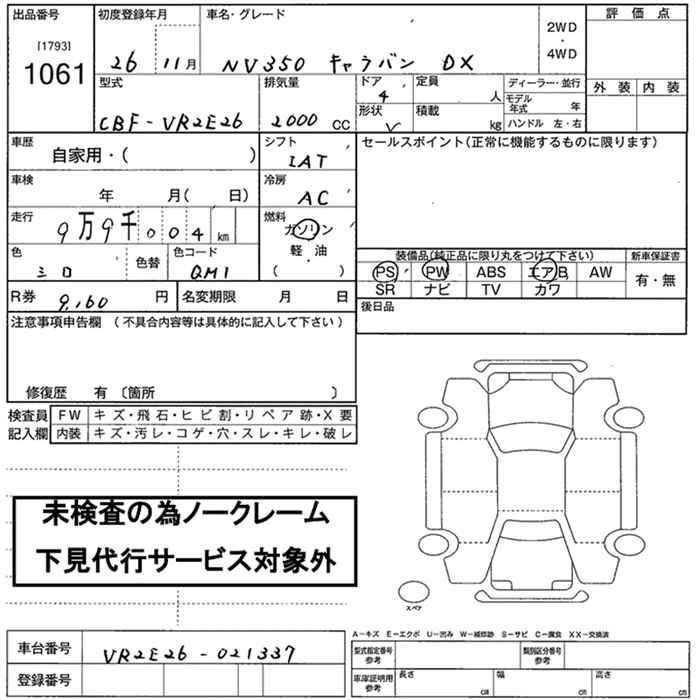 出品番号 初度登録年月 車名・グレード 評価点
[1793]
1061
26 11月 NV350 キャラバン DX
2WD
・
4WD
外装 内装
型式 排気量 ドア 定員 ディーラー・並行
CBF-VR2E26 2000 CC 4 人 モデル年式 年
形状 積載 kg ハンドル 左・右
V
車歴 シフト セールスポイント(正常に機能するものに限ります)
自家用・( ) IAT
車検 冷房
年 月( 日) AC
走行 燃料
9万9千004 km ガソリン
軽・油
( )
色 色替 色コード
シロ QM1
装備品(純品に限り丸をつけて下さい) 新車保証書
PS PW ABS エアB AW 有・無
SR ナビ TV カワ
R券 9,160 円 名変期限 月 日 後日品
注意事項申告欄 (不具合内容等は具体的に記入して下さい)
修復歴 有 〔箇所 〕
検査員 FW キズ・飛石・ヒビ割・リペア跡・X要
記入欄 内装 キズ・汚レ・コゲ・穴・スレ・キレ・破レ
未検査の為ノークレーム
下見代行サービス対象外
スペア
A-キズ E-エクボ U-凹み W-補修跡 S-サビ C-腐食 XX-交換済
車台番号 VR2E26-021337
登録番号
型式指定番号 参考 類別区分番号 参考
車庫証明用 参考 長さ cm 幅 cm 高さ cm